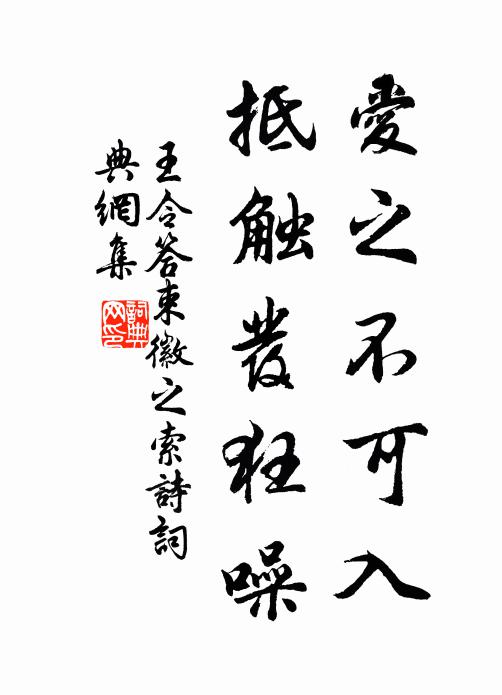 愛之不可入
抵触發狂噪
王令答束徽之索詩詞
典網集
詞典網印